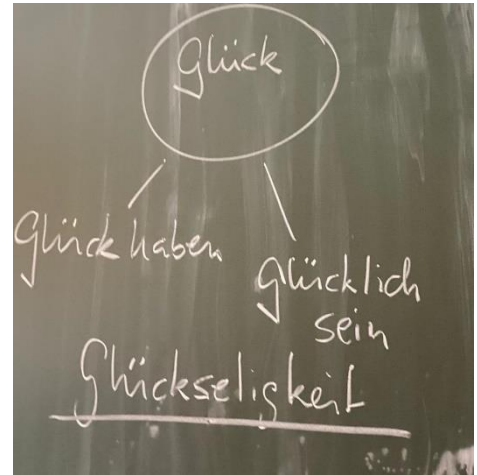 Glück
Glück haben
glücklich
sein
Glückseligkeit